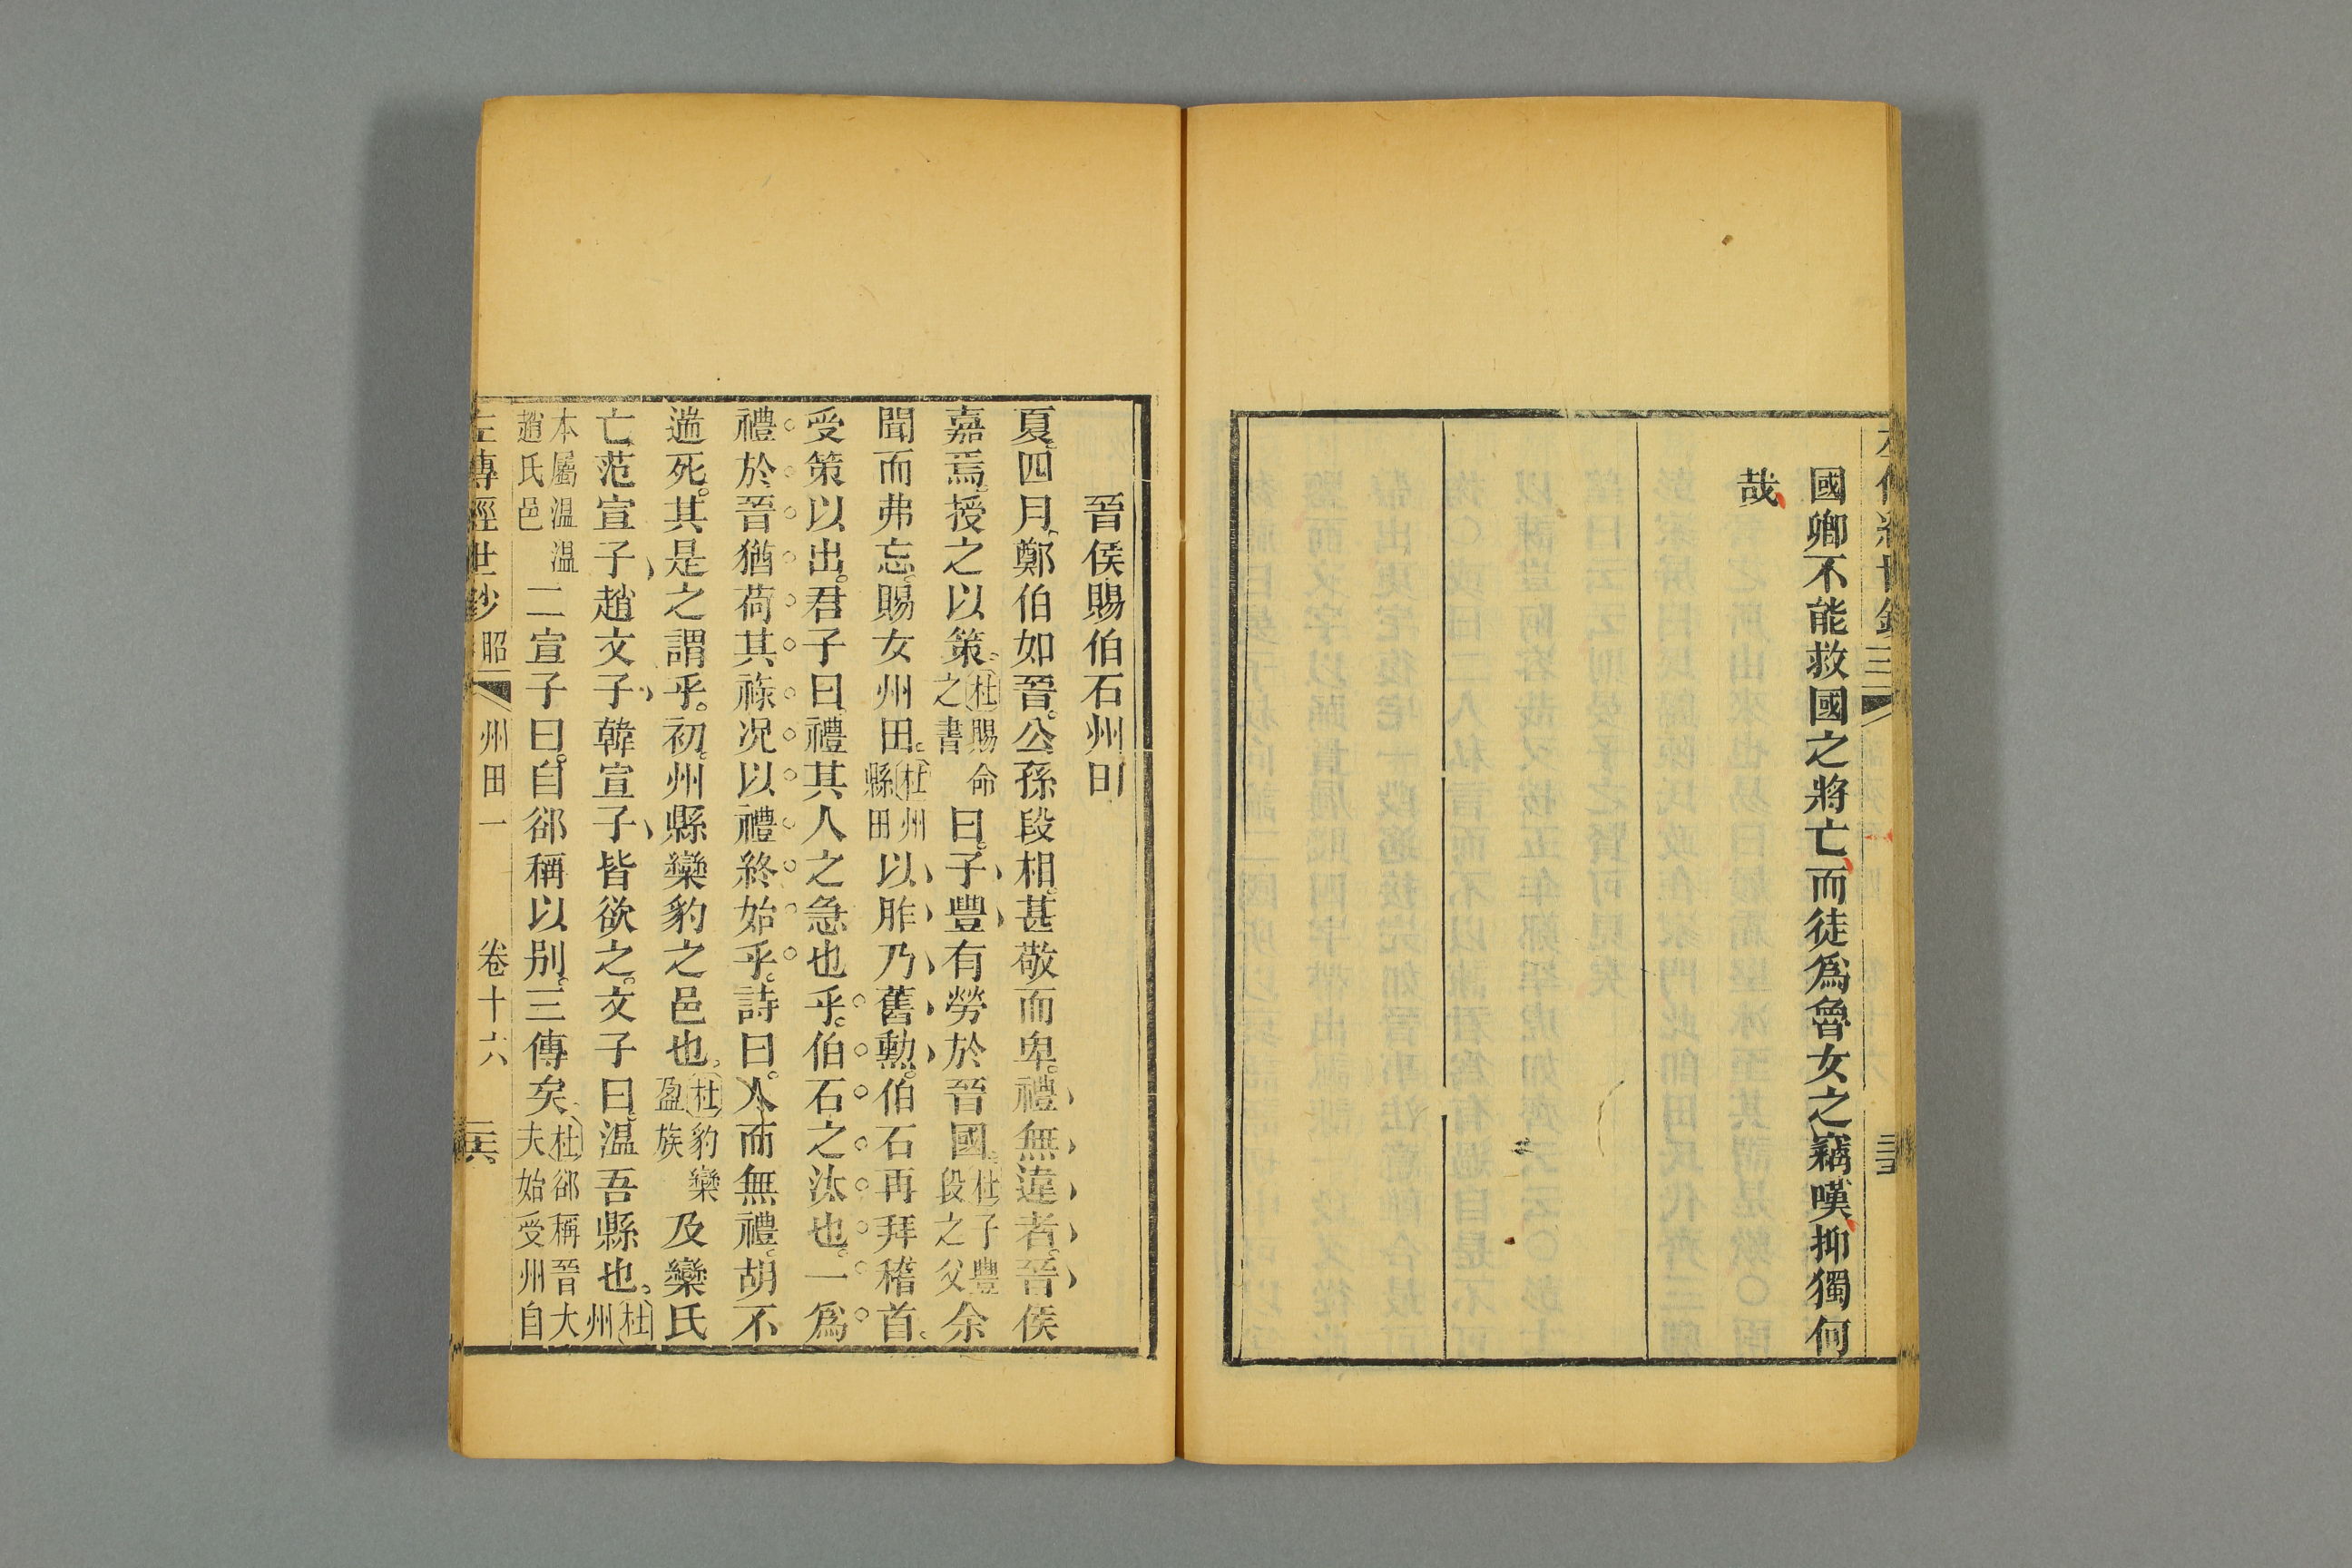 國卿不能救國之將亡而徒爲魯女之竊嘆抑獨何
哉
晉侯賜伯石州田
夏四月鄭伯如晉公孫段相甚敬而卑禮無違者晉侯
嘉焉授之以策杜賜命之書曰子豐有勞於晉國杜子豐段之父余
聞而弗忘賜女州田杜州縣田以胙乃舊勳伯石再拜稽首
受策以出君子曰禮其人之急也乎伯石之汰也一爲
禮於晉猶荷其祿况以禮終始乎詩曰人而無禮胡不
遄死其是之謂乎初州縣欒豹之邑也杜豹欒盈族及欒氏
亡范宣子趙文子韓宣子皆欲之文子曰温吾縣也杜州
本屬温温趙氏邑二宣子曰自郤稱以别三傳矣杜郤稱晉大夫始受州自
左傳經世鈔 昭 州田一 卷十六